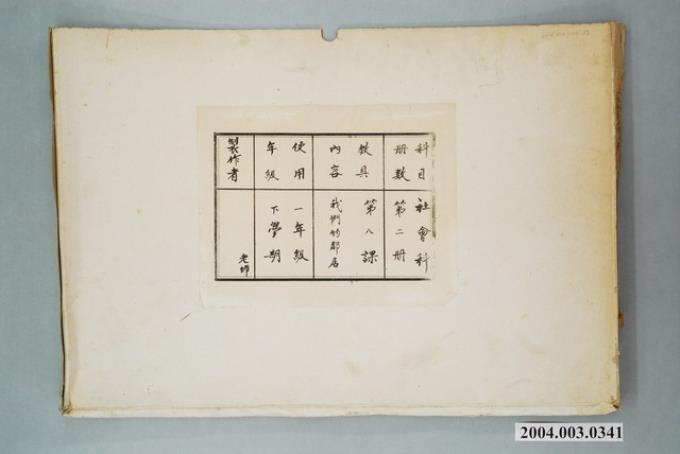 科目 社會科
冊數 第二冊
教具 第八課
內容 我們的鄰居
使用 一年級
年級 下學期
製作者 老師
2004.003.0341